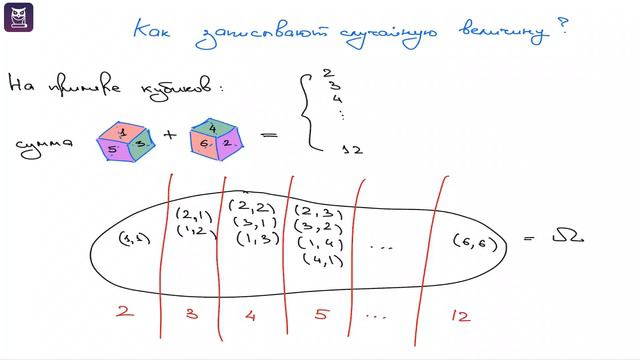 Как записывают случайную величину?
На примере кубиков:
2
3
4
⋮
12
сумма 1 5 3 + 4 6 2 =
(1,1) (2,1) (2,2) (2,3) ... (6,6) = Ω
(1,2) (3,1) (3,2)
(1,3) (1,4)
(4,1)
2 3 4 5 ... 12